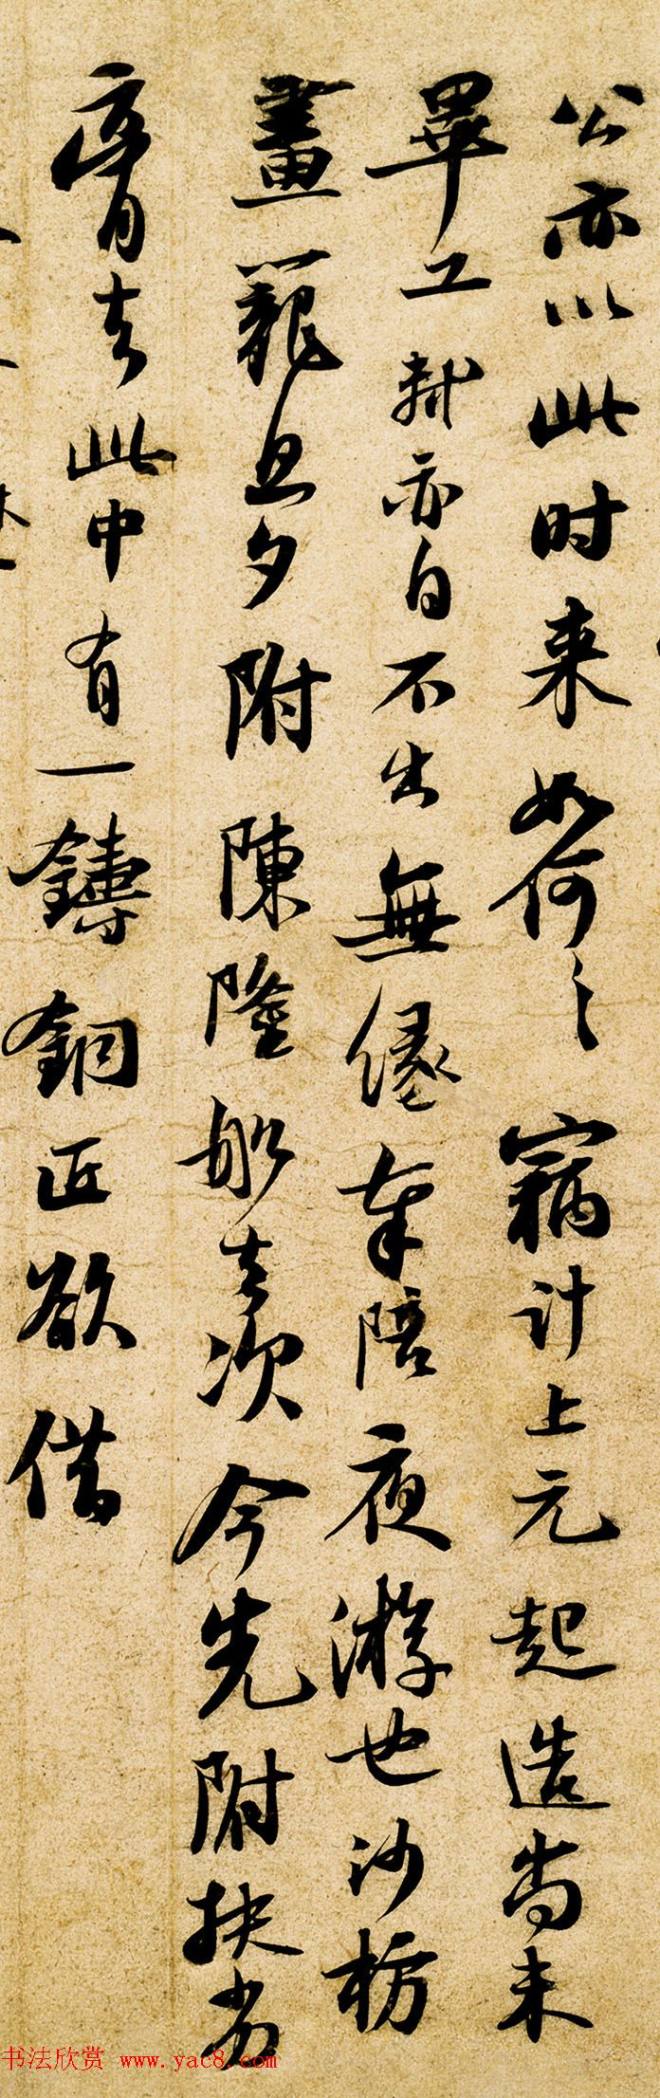 公亦以此时来如何々窃计上元起造尚未
畢工轼亦自不出無缘奉陪夜游也沙枋
畫籠旦夕附陳隆船去次今先附扶劣
膏去此中有一鑄銅匠欲借
书法欣赏 www.yac8.com